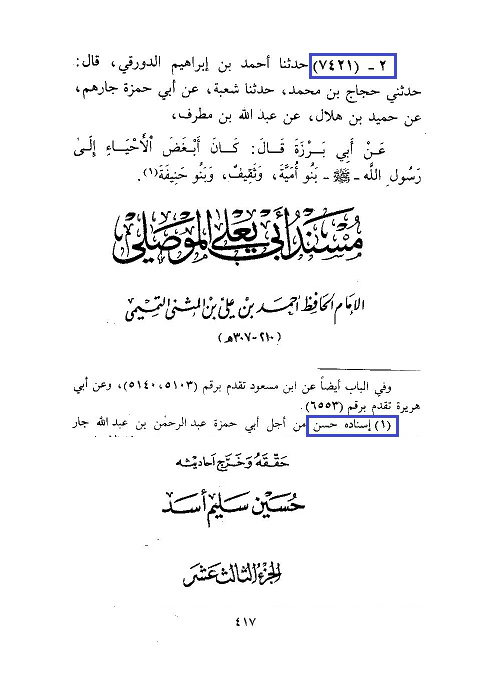 ٢ - (٧٤٢١) حدثنا أحمد بن إبراهيم الدورقي، قال:
حدثني حجاج بن محمد، حدثنا شعبة، عن أبي حمزة جارهم،
عن حميد بن هلال، عن عبد الله بن مطرف،
عَنْ أَبِي بَرْزَةَ قَالَ: كَانَ أَبْغَضَ الْأَحْيَاءِ إِلَىٰ
رَسُولِ اللَّهِ - ﷺ - بَنُو أُمَيَّةَ، وَثَقِيفٌ، وَبَنُو حَنِيفَةَ(١).
مُسْنَدُ أَبِي يَعْلَى الْمَوْصِلِيِّ
الإمام الحافظ أحمد بن علي بن المثنى التميمي
(٢١٠-٣٠٧هـ)
وفي الباب أيضاً عن ابن مسعود تقدم برقم (٥١٠٣، ٥١٤٠)، وعن أبي
هريرة تقدم برقم (٦٥٥٣).
(١) إسناده حسن من أجل أبي حمزة عبد الرحمٰن بن عبد الله جار
حَقَّقَهُ وَخَرَّجَ أَحَادِيثَه
حُسَيْن سَلِيم أَسَد
الجُزءُ الثَّالِثَ عَشَر
٤١٧